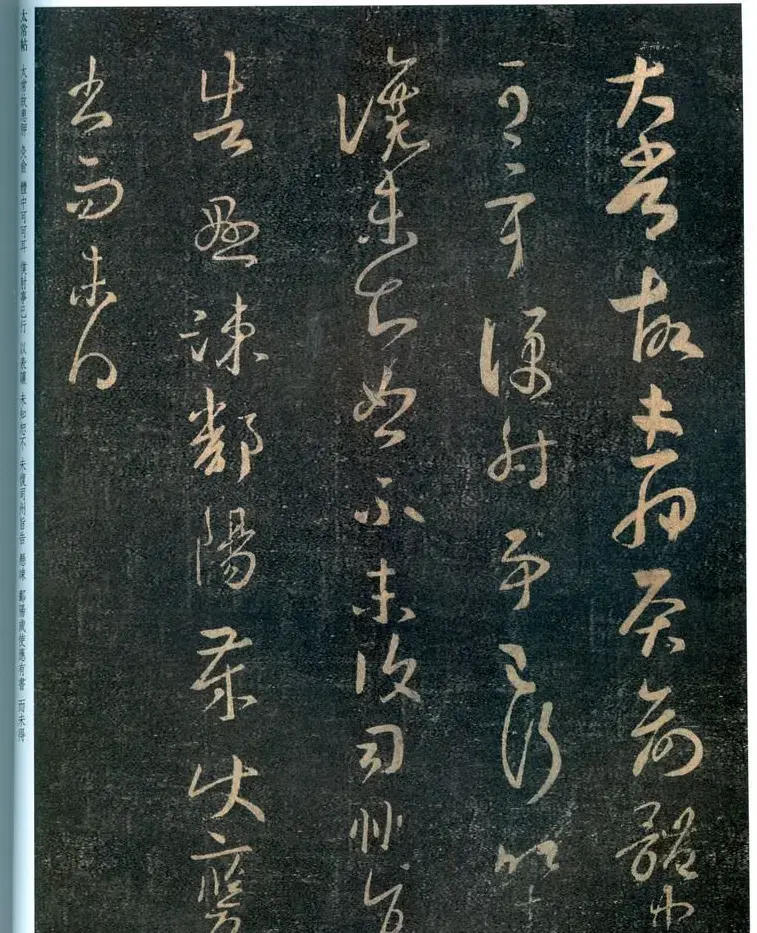 太常故患胛灸俞體中
可可耳僕射事已行以
讓未知恕不未復司州旨
告懸悚鄱陽歲使應
書而未得
太常帖 太常故患胛 灸俞 體中可可耳 僕射事已行 以表讓 未知恕不 未復司州旨告 懸悚 鄱陽歲使應有書 而未得